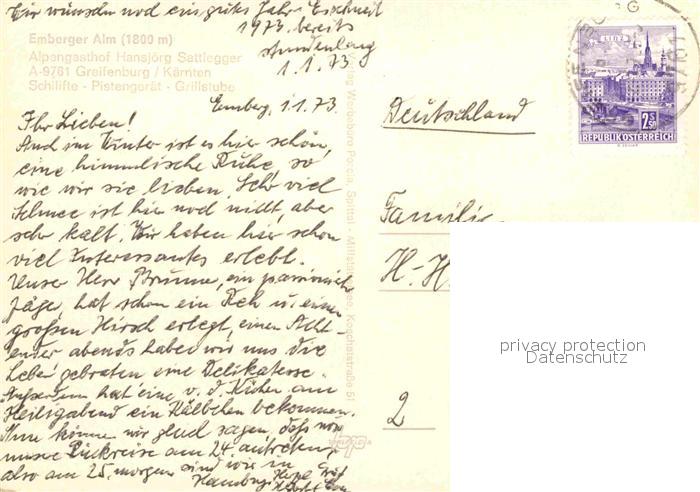 Wir wünschen noch ein gutes Jahr
1973 bereits
stundenlang
1.1.73.
Emberger Alm (1800 m)
Alpengasthof Hansjörg Sattlegger
A-9761 Greifenburg / Kärnten
Schilifte - Pistengerät - Grillstube
Emberg, 1.1.73.
Ihr Lieben!
Auch im Winter ist es hier schön,
eine himmlische Ruhe, so
wie wir sie lieben. Sehr viel
Schnee ist hier noch nicht, aber
sehr kalt. Wir haben hier schon
viel Interessantes erlebt.
Unser Herr Brunne, ein passionierter
Jäger, hat schon ein Reh u. einen
großen Hirsch erlegt, einen Acht-
ender abends haben wir uns die
Leber gebraten eine Delikatesse.
Außerdem hat eine v. d. Kühen am
Heiligabend ein Kälbchen bekommen.
Nun können wir gleich sagen, daß wir
unsere Rückreise am 24. antreten,
also am 25. morgen sind wir in
Hamburg.
Verlag Werbebüro Porcia Spittal - Millstätter See, Koschatstraße 51
Deutschland
Familie
H.-H.
2
LINZ
2.50
REPUBLIK ÖSTERREICH
9761
privacy protection
Datenschutz